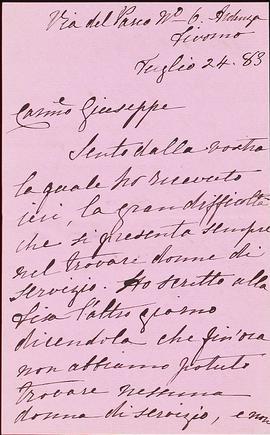 Via del Parco Nº 6. Ardenza
Livorno
Luglio 24. 83
Carmo Giuseppe
Sento dalla vostra
la quale ho ricevuto
ieri, la gran difficoltà
che si presenta sempre
nel trovare donne di
servizio. Ho scritto alla
Lisa l'altro giorno
dicendola che finora
non abbiamo potuto
trovare nessuna
donna di servizio, e non